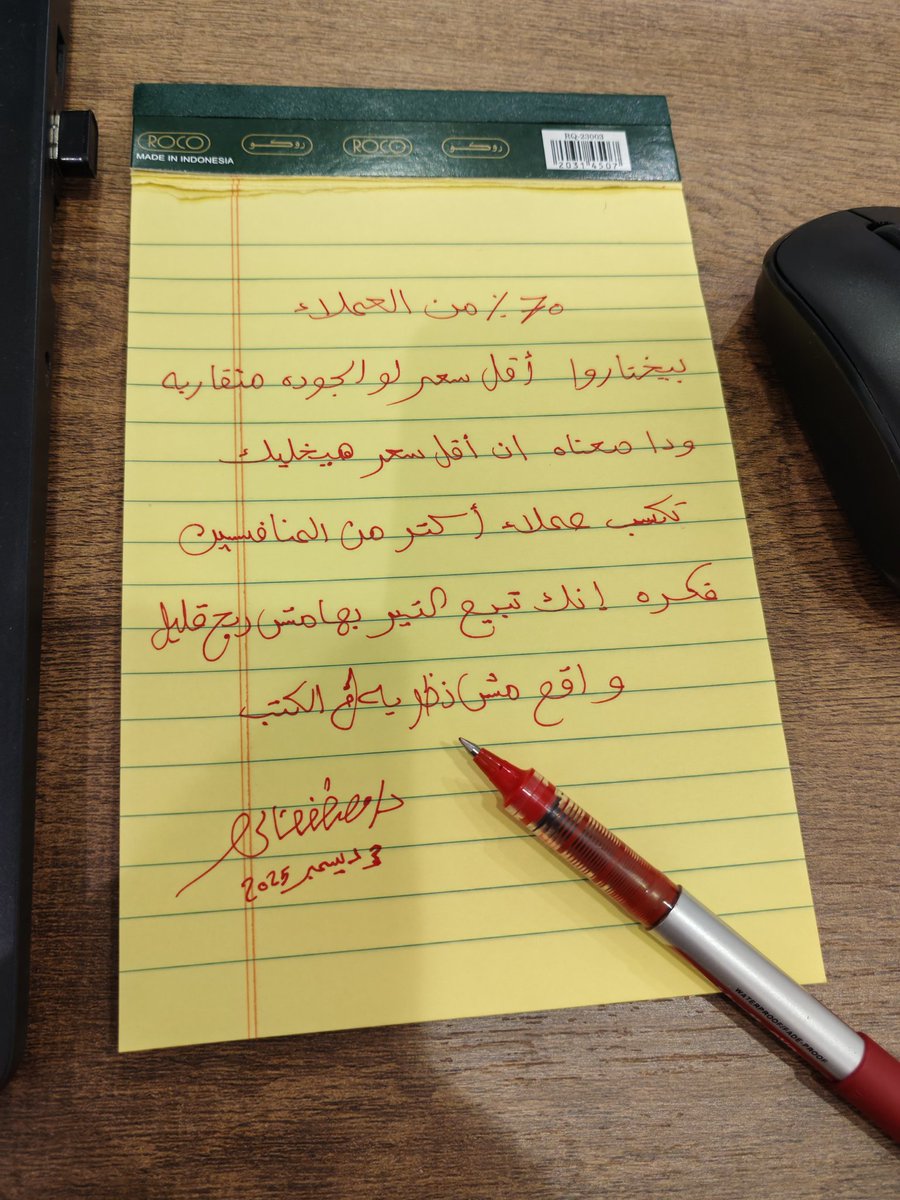 ROCO روكو ROCO روكو
MADE IN INDONESIA
RQ-23003
2031 4507
70٪ من العملاء
بيختاروا أقل سعر لو الجوده متقاربه
ودا معناه ان أقل سعر هيخليك
تكسب عملاء أكتر من المنافسين
فكره إنك تبيع كتير بهامش ربح قليل
واقع مش نظريه في الكتب
3 ديسمبر 2025
WATERPROOF/FADE PROOF